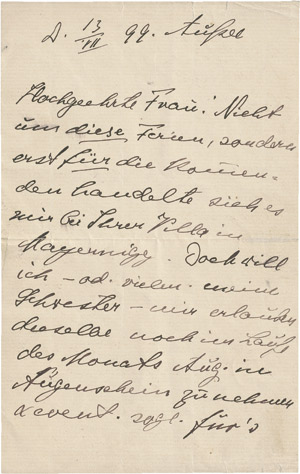 D. 13/VII 99. Aussee
Hochgeehrte Frau! Nicht
um diese Ferien, sondern
erst für die kommen=
den handelte sich es
mir bei Ihrer Villa in
Mayernigg. Doch will
ich – od. vielm. meine
Schwester – mir erlauben
dieselbe noch im Laufe
des Monats Aug. in
Augenschein zu nehmen
u. event. sogl. für's